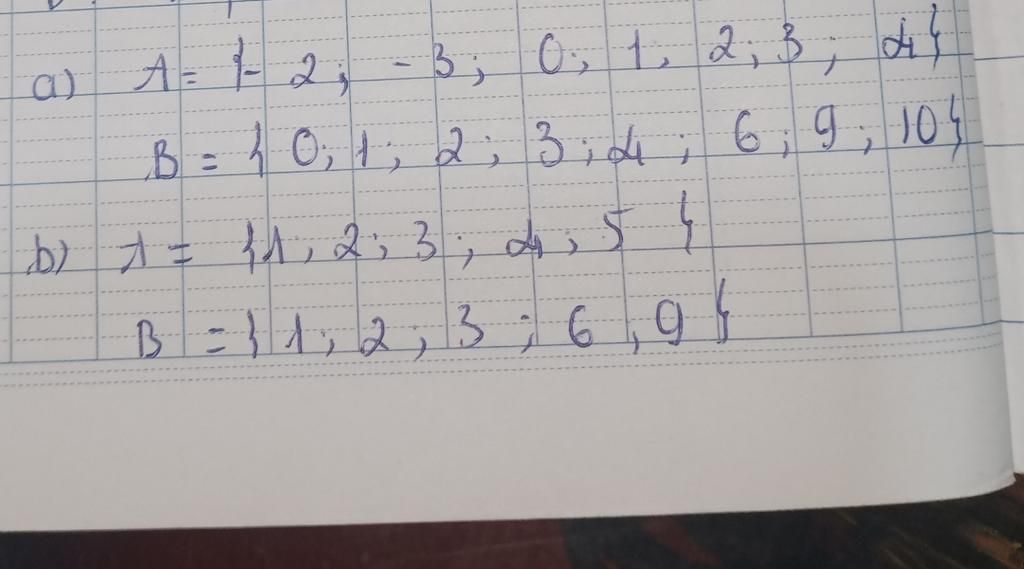 a) A = {- 2; - 3; 0; 1; 2; 3; 4}
B = { 0; 1; 2; 3; 4; 6; 9; 10}
b) A = {1; 2; 3; 4; 5 }
B = { 1; 2; 3; 6, 9 }